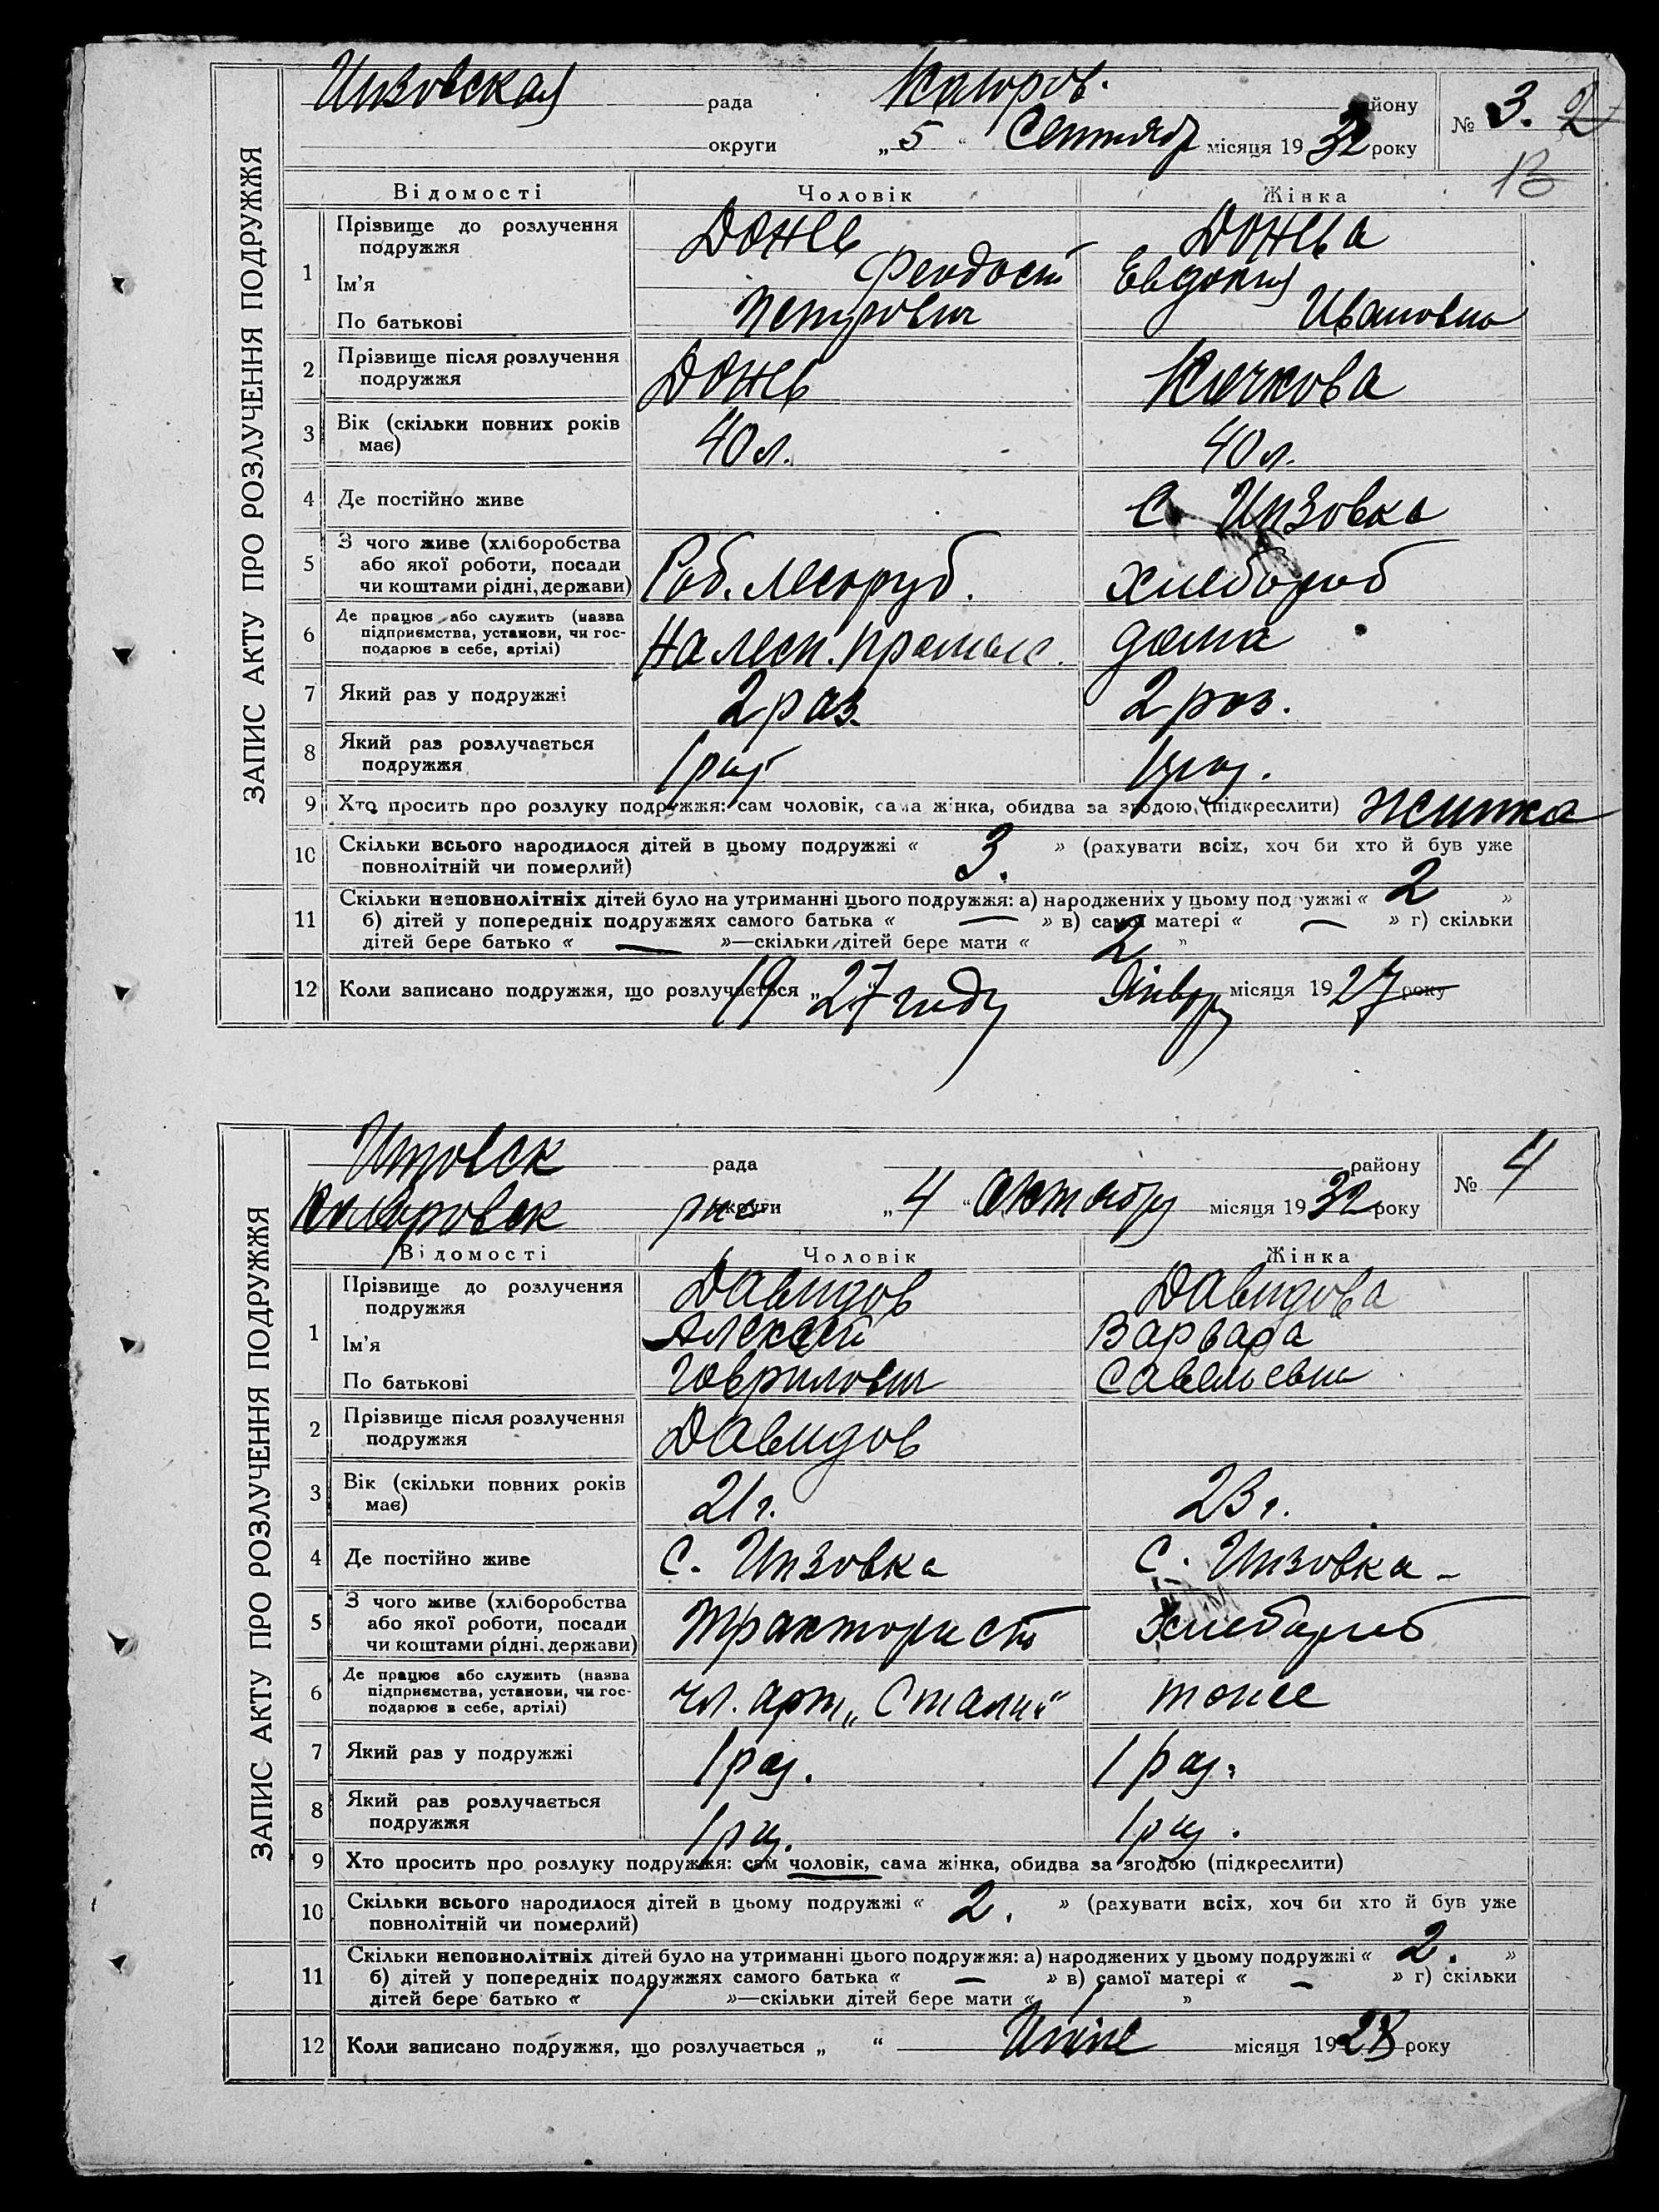 ЗАПИС АКТУ ПРО РОЗЛУЧЕННЯ ПОДРУЖЖЯ
рада району № 3. 2
округи „ 5 “ Сентябр місяця 1932 року
13
Відомості Чоловік Жінка
1 Прізвище до розлучення подружжя Донев Донева
Ім'я Феодосий Евдокия
По батькові Петрович Ивановна
2 Прізвище після розлучення подружжя Донев
3 Вік (скільки повних років має) 40 л. 40 л.
4 Де постійно живе С. Инзовка
5 З чого живе (хліборобства або якої роботи, посади чи коштами рідні, держави) Раб. лесоруб. хлебороб
6 Де працює або служить (назва підприємства, установи, чи господарює в себе, артілі) На лесн. дома
7 Який раз у подружжі 2 раз. 2 раз.
8 Який раз розлучається подружжя 1 раз 1 раз.
9 Хто просить про розлуку подружжя: сам чоловік, сама жінка, обидва за згодою (підкреслити)
10 Скільки всього народилося дітей в цьому подружжі « 3. » (рахувати всіх, хоч би хто й був уже
повнолітній чи померлий)
11 Скільки неповнолітніх дітей було на утриманні цього подружжя: а) народжених у цьому подружжі « 2 »
б) дітей у попередніх подружжях самого батька « — » в) самої матері « — » г) скільки
дітей бере батько « — »—скільки дітей бере мати « 2 »
12 Коли записано подружжя, що розлучається „ 1927 году Январ місяця 1927 року
ЗАПИС АКТУ ПРО РОЗЛУЧЕННЯ ПОДРУЖЖЯ
рада району № 4
округи „ 4 “ Октябр місяця 1932 року
Відомості Чоловік Жінка
1 Прізвище до розлучення подружжя Давидов Давидова
Ім'я Алексей Варвара
По батькові Гаврилович Савельевна
2 Прізвище після розлучення подружжя Давидов
3 Вік (скільки повних років має) 21 г. 23 г.
4 Де постійно живе С. Инзовка С. Инзовка
5 З чого живе (хліборобства або якої роботи, посади чи коштами рідні, держави) Тракторист Хлебороб
6 Де працює або служить (назва підприємства, установи, чи господарює в себе, артілі) чл. арт. „Сталин“ тоже
7 Який раз у подружжі 1 раз. 1 раз.
8 Який раз розлучається подружжя 1 раз. 1 раз.
9 Хто просить про розлуку подружжя: сам чоловік, сама жінка, обидва за згодою (підкреслити)
10 Скільки всього народилося дітей в цьому подружжі « 2. » (рахувати всіх, хоч би хто й був уже
повнолітній чи померлий)
11 Скільки неповнолітніх дітей було на утриманні цього подружжя: а) народжених у цьому подружжі « 2. »
б) дітей у попередніх подружжях самого батька « — » в) самої матері « — » г) скільки
дітей бере батько « 1 »—скільки дітей бере мати « 1 »
12 Коли записано подружжя, що розлучається „ “ місяця 1928 року